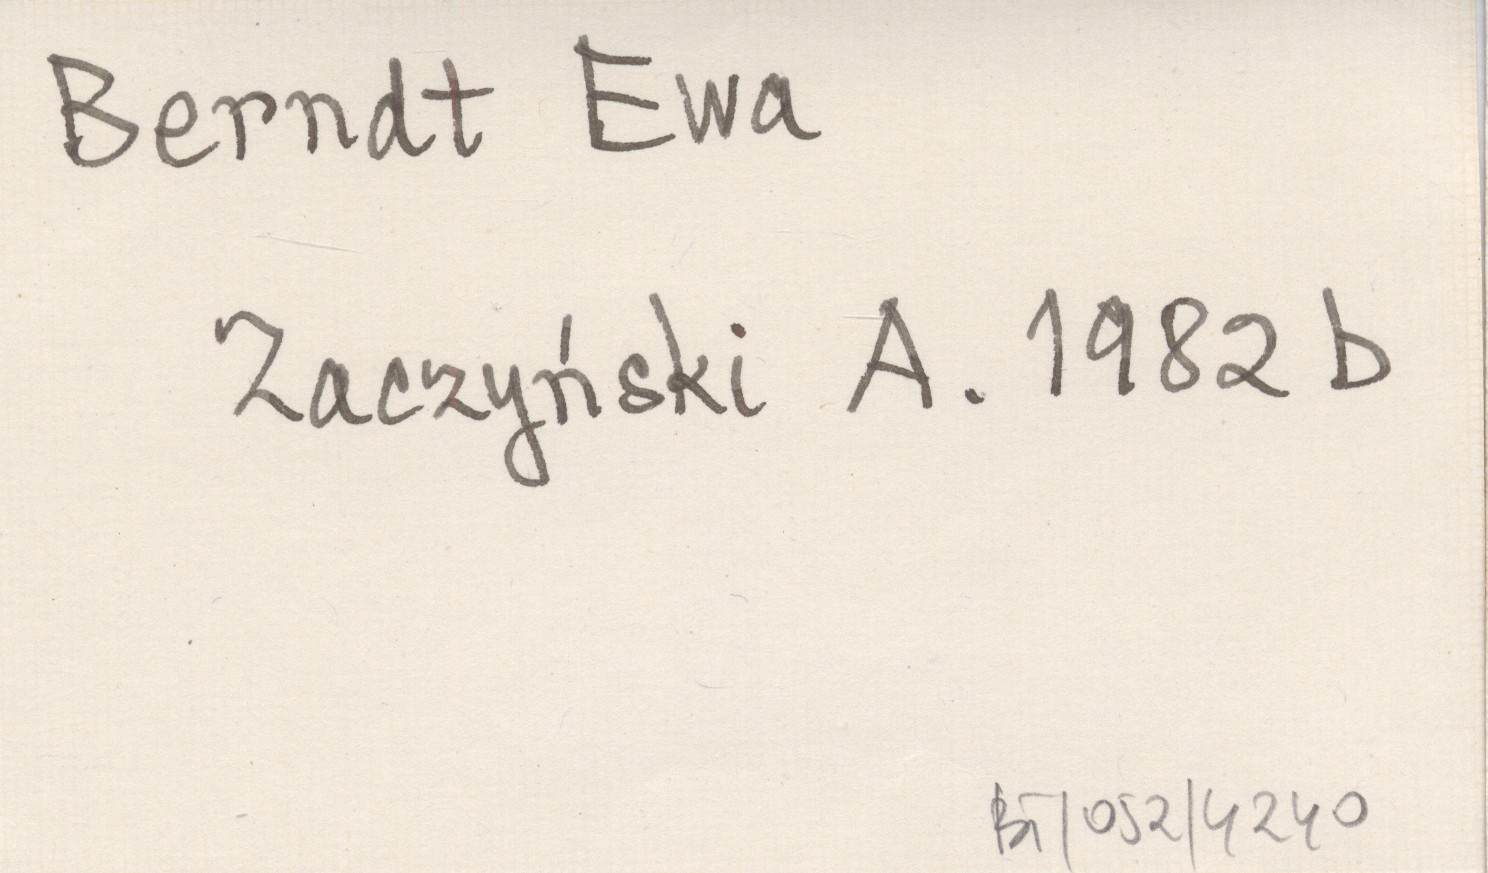 Berndt Ewa
Zaczyński A. 1982 b
BT/052/4240